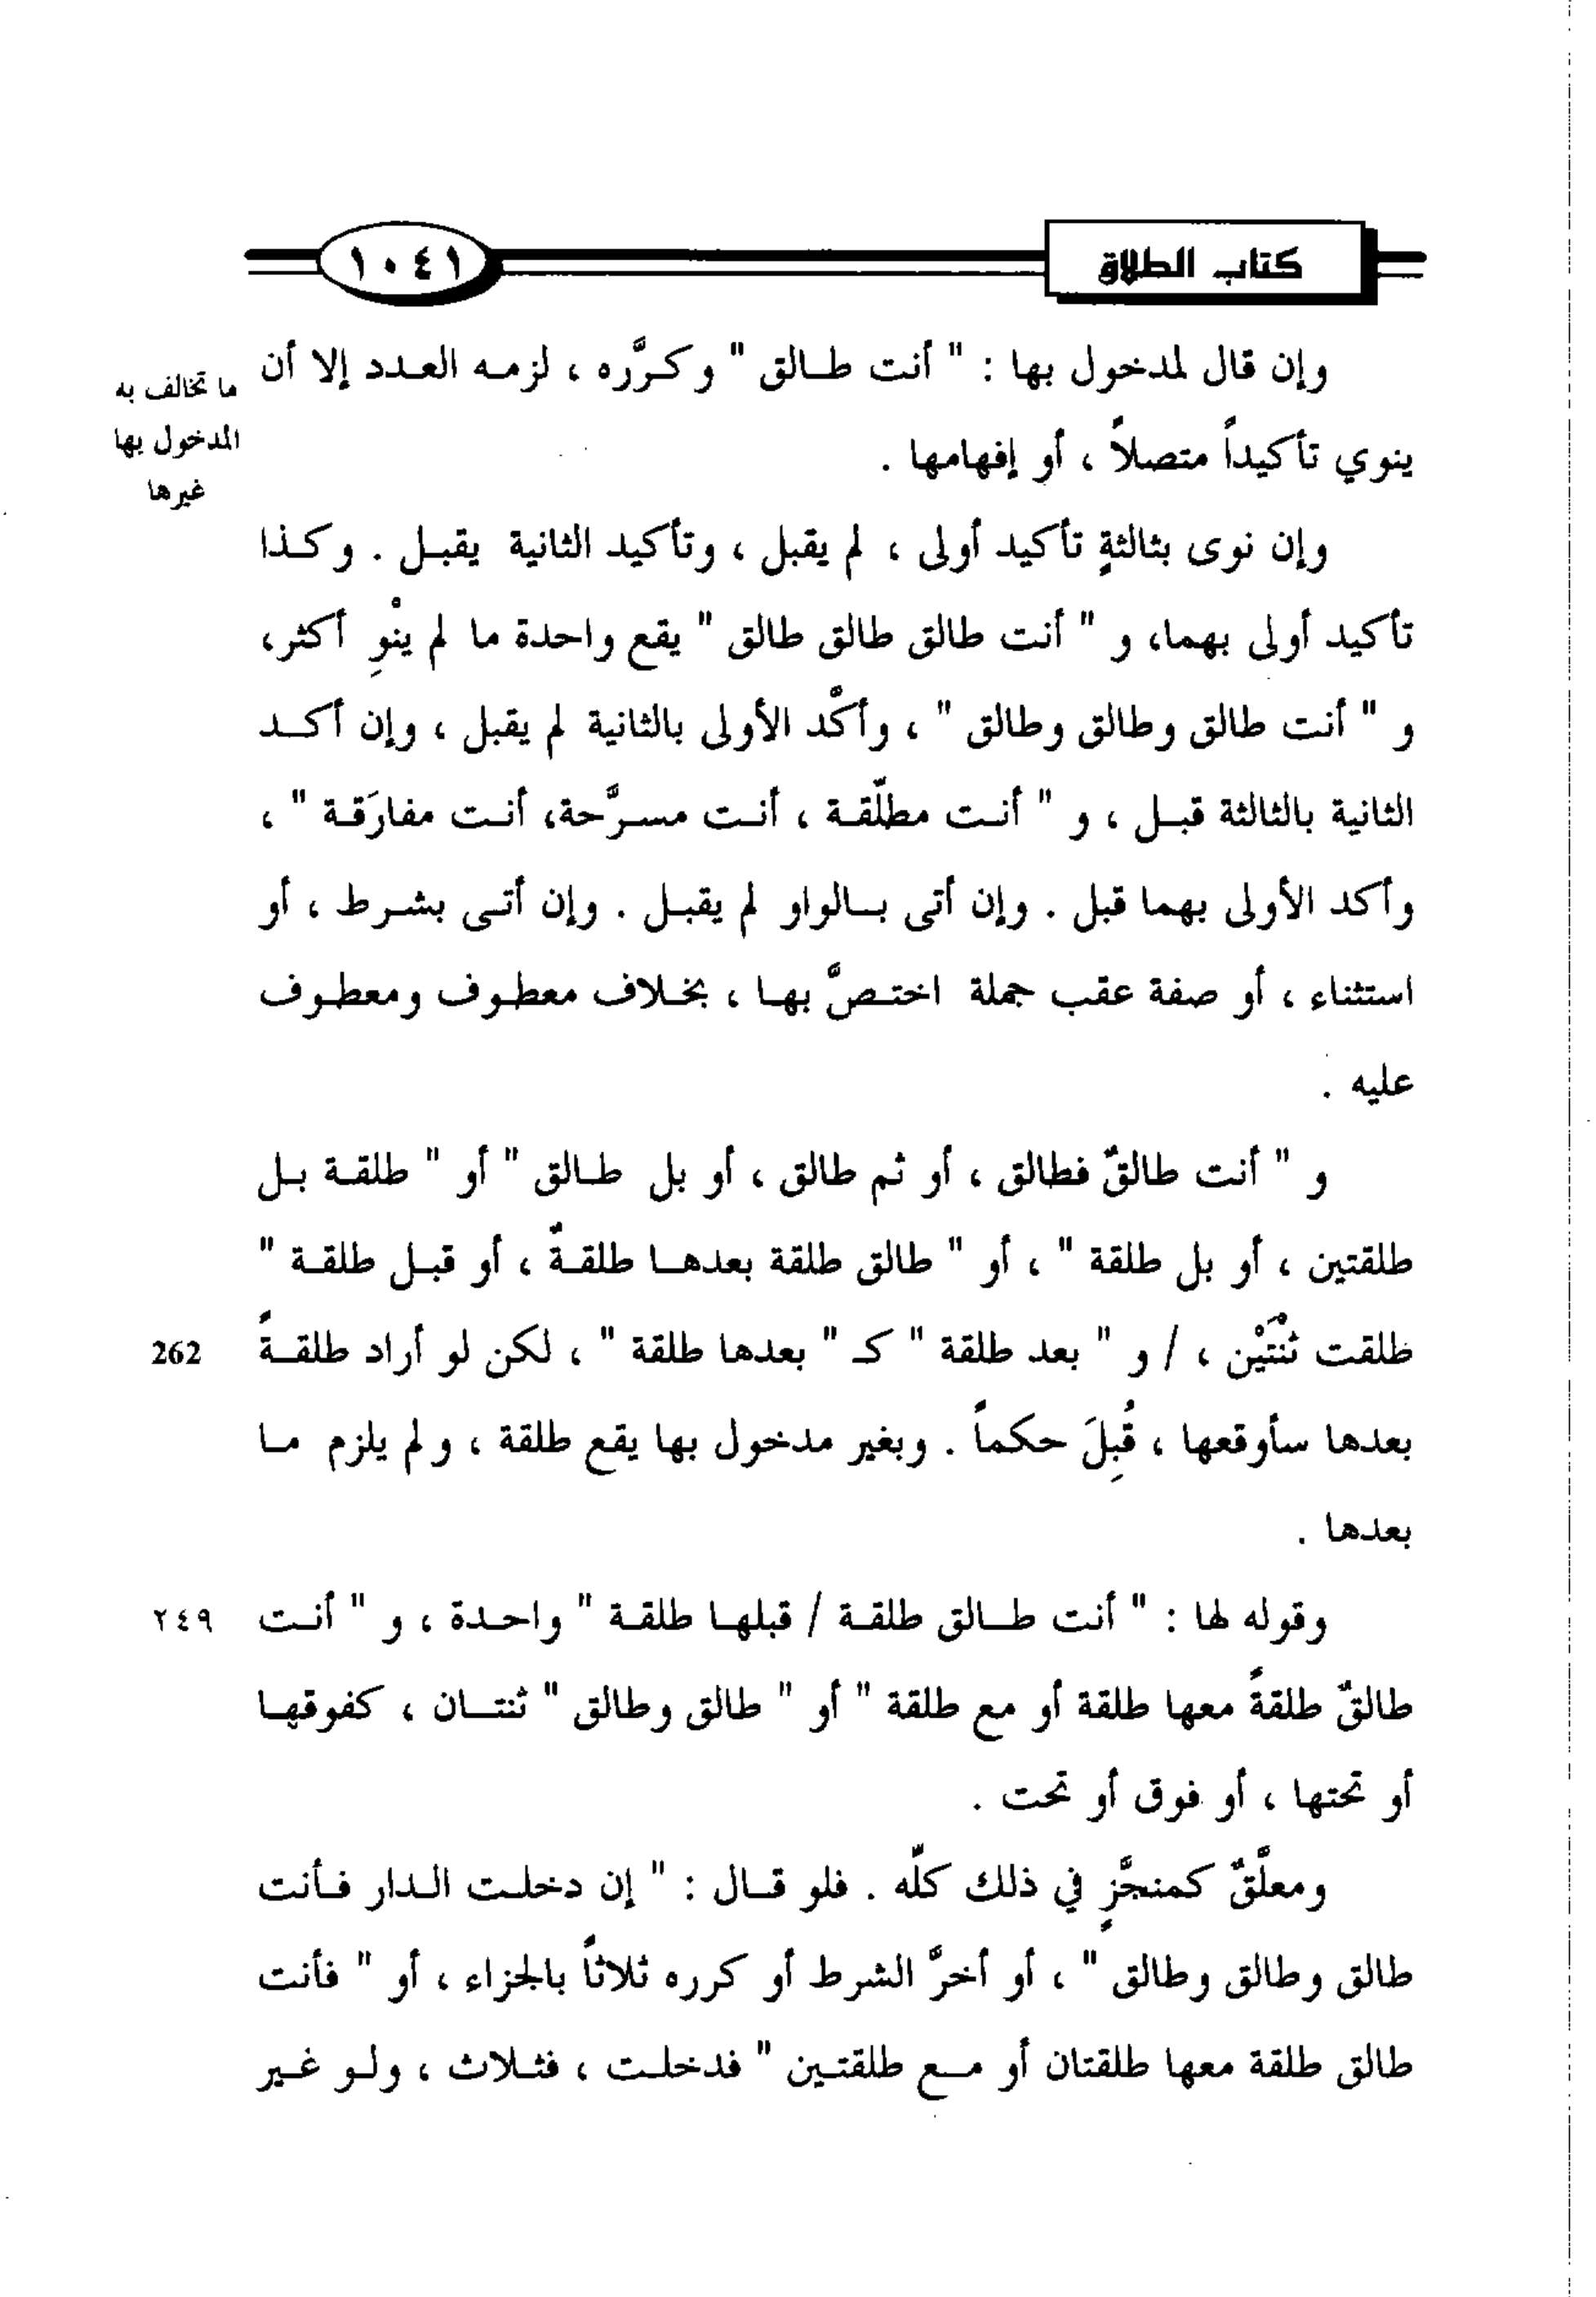 كتاب الطلاق
١٠٤١
وإن قال لمدخول بها : " أنت طالق " وكرَّره ، لزمه العدد إلا أن
ما تخالف به
المدخول بها
غيرها
ينوي تأكيداً متصلاً ، أو إفهامها .
وإن نوى بثالثةٍ تأكيد أولى ، لم يقبل ، وتأكيد الثانية يقبل . وكذا
تأكيد أولى بهما، و " أنت طالق طالق طالق " يقع واحدة ما لم ينْوِ أكثر،
و " أنت طالق وطالق وطالق " ، وأكّد الأولى بالثانية لم يقبل ، وإن أكد
الثانية بالثالثة قبل ، و " أنت مطلّقة ، أنت مسرَّحة، أنت مفارَقة " ،
وأكد الأولى بهما قبل . وإن أتى بالواو لم يقبل . وإن أتى بشرط ، أو
استثناء ، أو صفة عقب جملة اختصَّ بها ، بخلاف معطوف ومعطوف
عليه .
و " أنت طالقٌ فطالق ، أو ثم طالق ، أو بل طالق " أو " طلقة بل
طلقتين ، أو بل طلقة " ، أو " طالق طلقة بعدها طلقةٌ ، أو قبل طلقة "
طلقت ثنْتَيْن ، / و " بعد طلقة " كـ " بعدها طلقة " ، لكن لو أراد طلقةً
262
بعدها سأوقعها ، قُبِلَ حكماً . وبغير مدخول بها يقع طلقة ، ولم يلزم ما
بعدها .
وقوله لها : " أنت طالق طلقة / قبلها طلقة " واحدة ، و " أنت
٢٤٩
طالقٌ طلقةً معها طلقة أو مع طلقة " أو " طالق وطالق " ثنتان ، كفوقها
أو تحتها ، أو فوق أو تحت .
ومعلَّقٌ كمنجَّزٍ في ذلك كلّه . فلو قال : " إن دخلت الدار فأنت
طالق وطالق وطالق " ، أو أخرَّ الشرط أو كرره ثلاثاً بالجزاء ، أو " فأنت
طالق طلقة معها طلقتان أو مع طلقتين " فدخلت ، فثلاث ، ولو غير